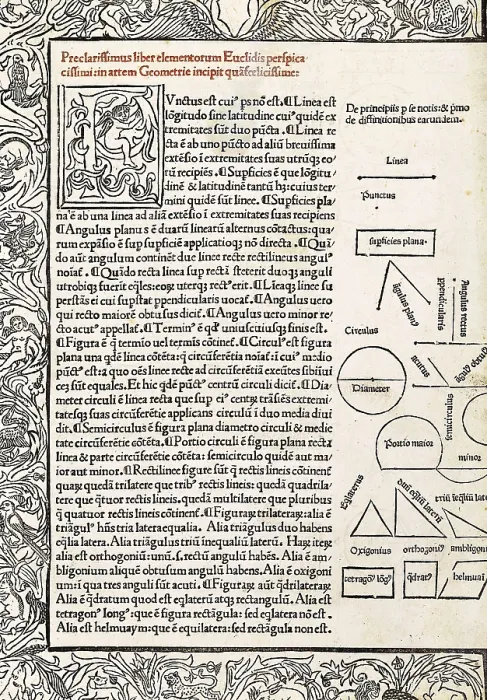 Preclarissimus liber elementorum Euclidis perspica
cissimi: in artem Geometrie incipit quãfoelicissime:
Vnctus est cuiꝰ ps nõ est. ¶ Linea est
lõgitudo sine latitudine cuiꝰ quidẽ ex
tremitates sũt duo pũcta. ¶ Linea re
cta ẽ ab uno pũcto ad aliũ breuissima
extẽsio ĩ extremitates suas utrũqꝫ eo/
rũ recipiẽs. ¶ Supficies ẽ que lõgitu/
dinẽ & latitudinẽ tantũ hꝫ: cuius ter
mini quidẽ sũt linee. ¶ Supficies pla/
naꝰ ẽ ab una linea ad aliã extẽsio ĩ extremitates suas recipiens
¶ Angulus planus ẽ duarũ linearũ alternus cõtactus: qua/
rum expãsio ẽ sup supficiẽ applicatioqꝫ nõ directa. ¶ Quã/
do aũt angulum continẽt due linee recte rectilineus angulꝰ
noiat̃. ¶ Quãdo recta linea sup rectã steterit duoqꝫ anguli
utrobiqꝫ fuerit eq̃les: eoꝝ uterqꝫ rectꝰ erit. ¶ Lineaqꝫ linee su
perstãs ei cui supstat ppendicularis uocat̃. ¶ Angulus uero
qui recto maior ẽ obtusus dicit̃. ¶ Angulus uero minor re/
cto acutꝰ appellat̃. ¶ Terminꝰ ẽ qđ uniuscuiusqꝫ finis est.
¶ Figura ẽ q̃ termino uel termis cõtinet̃. ¶ Circulꝰ est figura
plana una qdẽ linea cõtẽta: q̃ circũferẽtia noiat̃: ĩ cuiꝰ medio
pũctꝰ est: a quo oẽs linee recte ad circũferẽtiã exeũtes sibiĩui
cẽ sũt equales. Et hic qdẽ pũctꝰ centrũ circuli dicit̃. ¶ Dia/
meter circuli ẽ linea recta que sup eiꝰ centꝝ trãsiẽs extremi/
tatesqꝫ suas circũferẽtie applicans circulũ ĩ duo media diui
dit. ¶ Semicirculus ẽ figura plana diametro circuli & medie
tate circũferẽtie cõtẽta. ¶ Portio circuli ẽ figura plana recta
linea & parte circũferẽtie cõtẽta: semicirculo quidẽ aut ma/
ior aut minor. ¶ Rectilinee figure sũt q̃ rectis lineis cõtinent̃
quaꝝ quedã trilatere que tribꝰ rectis lineis: quedã quadrila/
tere que q̃tuor rectis lineis. quedã multilatere que pluribus
q̃ quatuor rectis lineis cõtinent̃. ¶ Figuraꝝ trilateraꝝ: alia ẽ
triãgulꝰ hñs tria latera equalia. Alia triãgulus duo habens
eq̃lia latera. Alia triãgulus triũ inequaliũ laterũ. Haꝝ iteꝝ
alia est orthogoniũ: unũ .s. rectũ angulũ habẽs. Alia ẽ am/
bligonium aliquẽ obtusum angulũ habens. Alia ẽ oxigoni
um: ĩ qua tres anguli sũt acuti. ¶ Figuraꝝ aũt q̃drilateraꝝ
Alia ẽ q̃dratum quod est eq̃lateꝝ atqꝫ rectangulũ. Alia est
tetragonꝰ longꝰ: que ẽ figura rectãgula: sed eq̃latera nõ est.
Alia est helmuaym: que ẽ equilatera: sed rectãgula non est.
De principiis p se notis: & pmo
de diffinitionibus earundem.
Linea
Punctus
supficies plana.
ãgulus planꝰ
ppendicularis
Angulus rectus
Circulus
acutus
Diameter
semicirculus
Portio maior
minor
Eq̃laterus
duũ eq̃liũ laterũ
triũ ĩeq̃liũ
Oxigonius
orthogoniꝰ
ambligon
tetragoꝰ lõgꝰ
q̃dratꝰ
helmuai